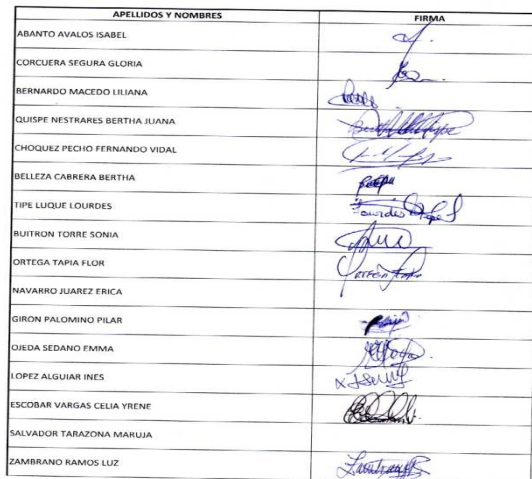 APELLIDOS Y NOMBRES FIRMA
ABANTO AVALOS ISABEL
CORCUERA SEGURA GLORIA
BERNARDO MACEDO LILIANA
QUISPE NESTRARES BERTHA JUANA
CHOQUEZ PECHO FERNANDO VIDAL
BELLEZA CABRERA BERTHA
TIPE LUQUE LOURDES Lourdes Tipe L
BUITRON TORRE SONIA
ORTEGA TAPIA FLOR
NAVARRO JUAREZ ERICA
GIRON PALOMINO PILAR
OJEDA SEDANO EMMA
LOPEZ ALGUIAR INES
ESCOBAR VARGAS CELIA YRENE
SALVADOR TARAZONA MARUJA
ZAMBRANO RAMOS LUZ